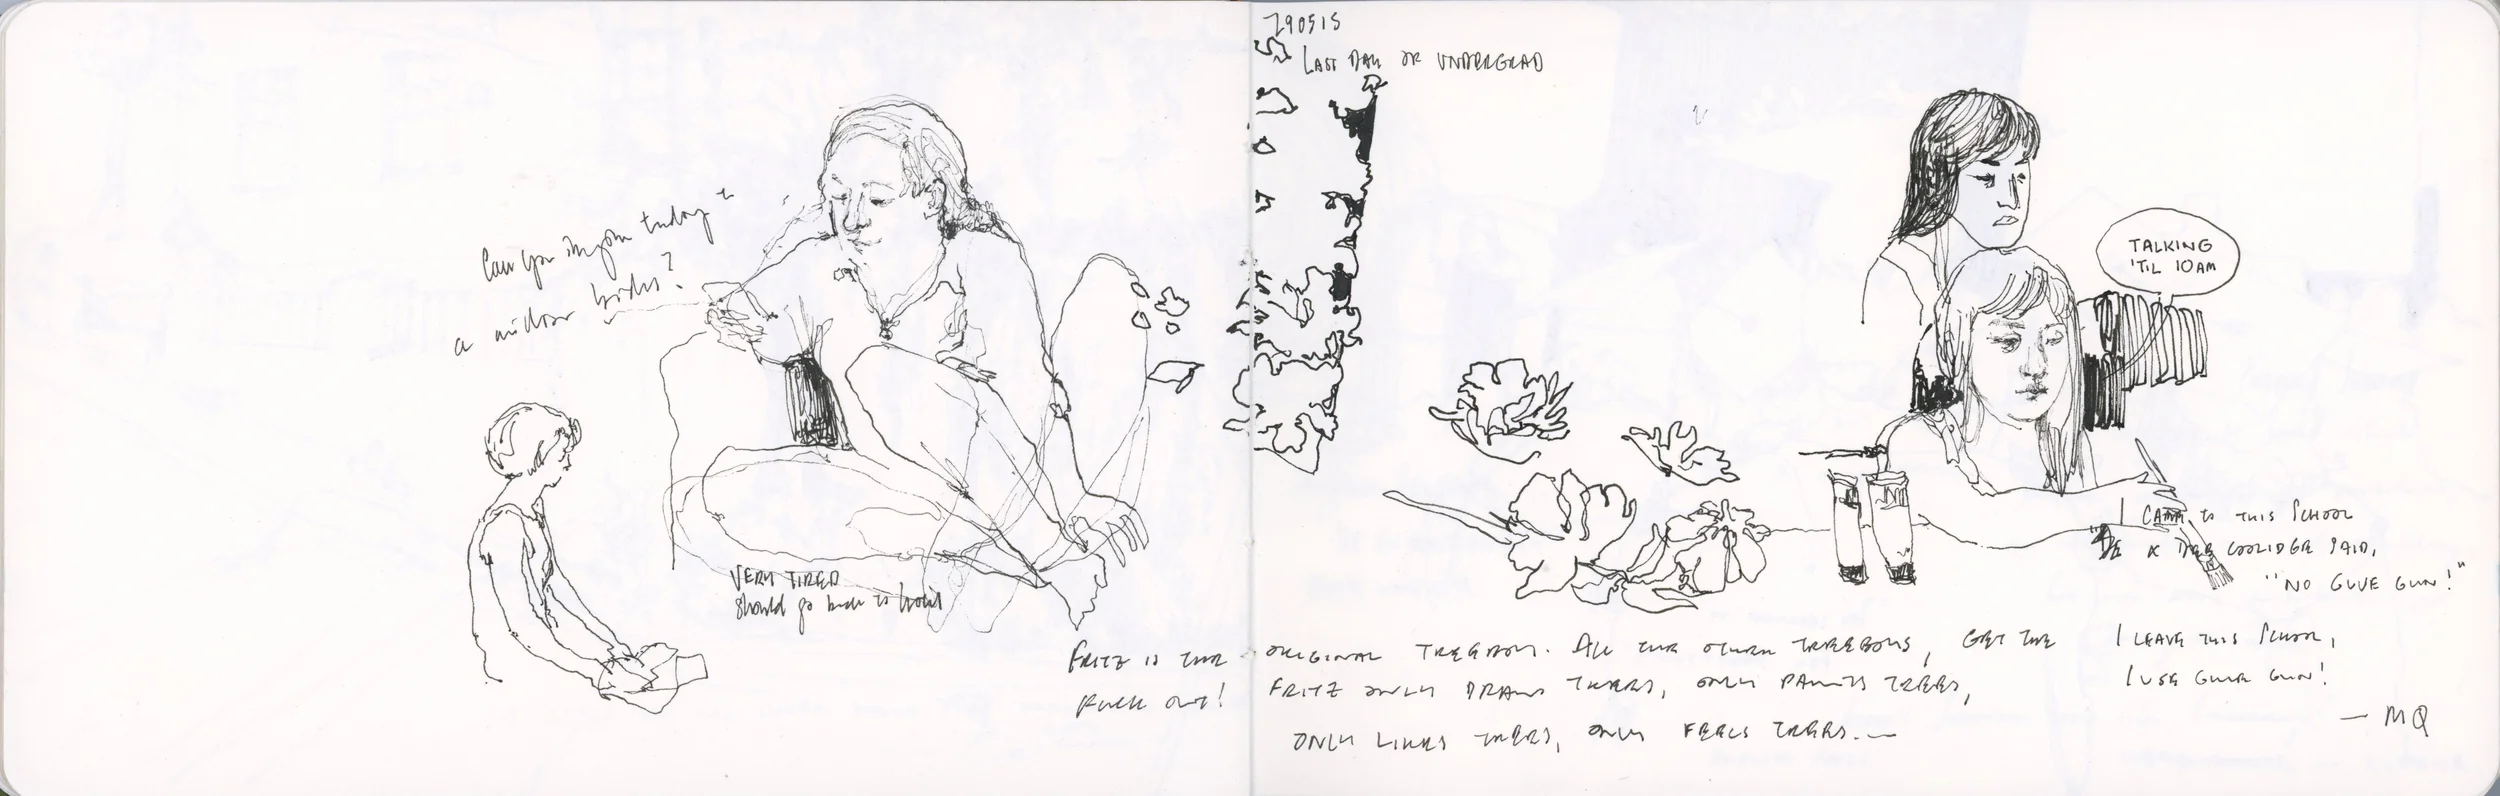 290515
LAST DAY OF UNDERGRAD
Can you imagine today is
a million
TALKING
'TIL 10AM
VERY TIRED
should go back to
I CAME TO THIS SCHOOL
& DEE COOLIDGE SAID,
"NO GLUE GUN!"
I LEAVE THIS SCHOOL,
I USE GLUE GUN!
— MQ
FRITZ IS THE ORIGINAL TREEBOY. ALL THE OTHER TREEBOYS, GET THE
FUCK OUT! FRITZ ONLY DRAWS TREES, ONLY PAINTS TREES,
ONLY LIKES TREES, ONLY FEELS TREES.—